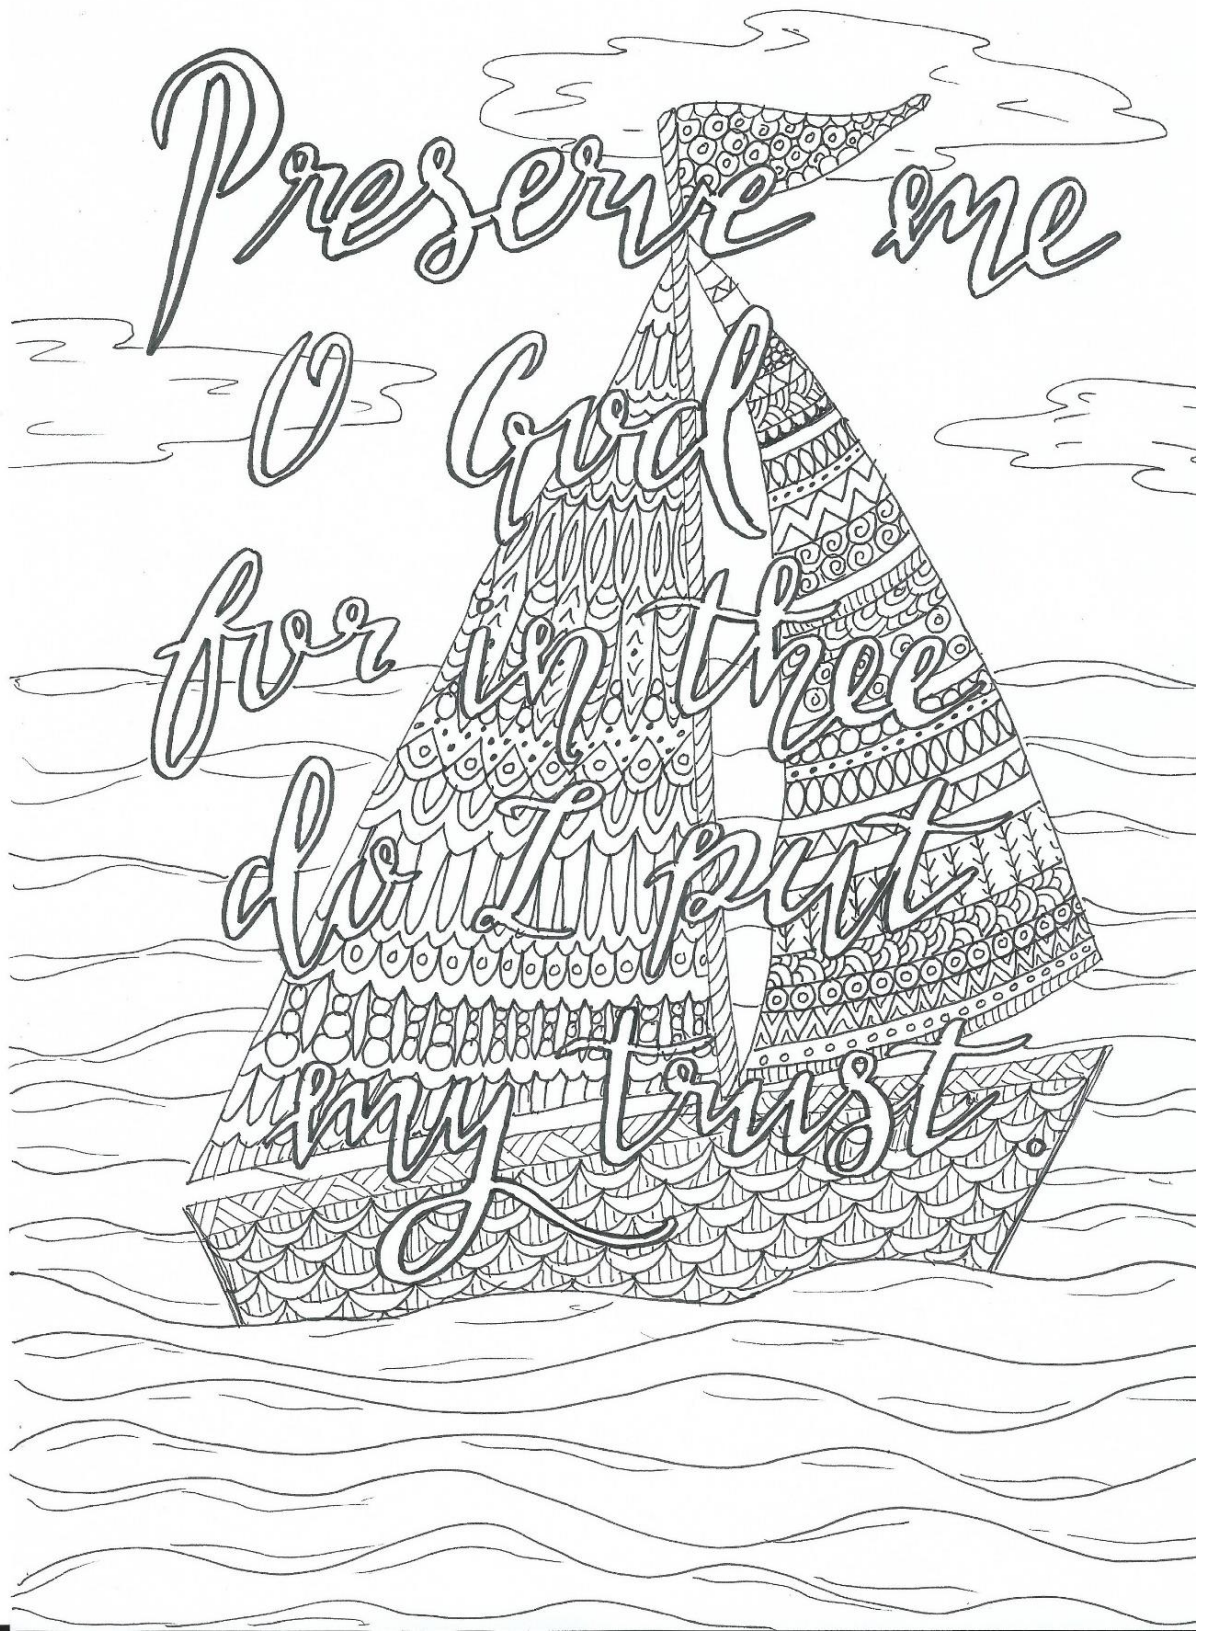 Preserve me
O God
for in thee
do I put
my trust